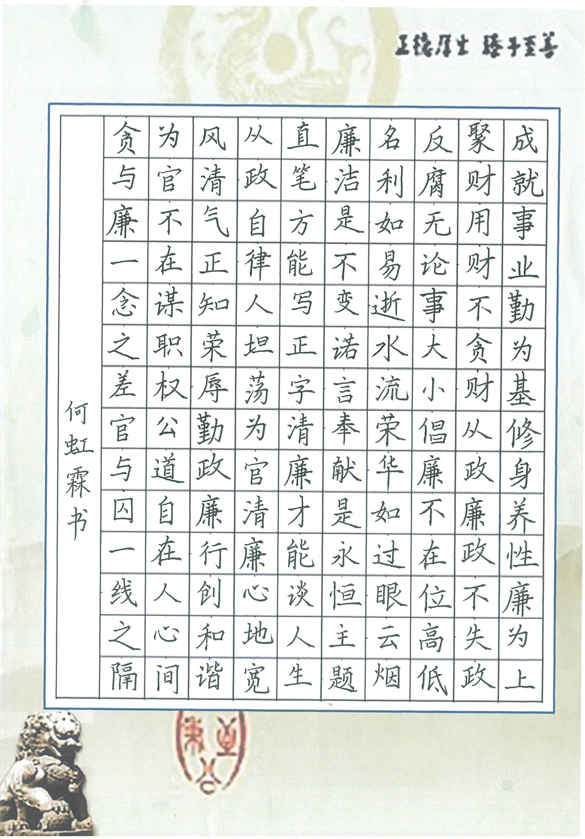 正德厚生 臻于至善
成就事业勤为基修身养性廉为上
聚财用财不贪财从政廉政不失政
反腐无论事大小倡廉不在位高低
名利如易逝水流荣华如过眼云烟
廉洁是不变诺言奉献是永恒主题
直笔方能写正字清廉才能谈人生
从政自律人坦荡为官清廉心地宽
风清气正知荣辱勤政廉行创和谐
为官不在谋职权公道自在人心间
贪与廉一念之差官与囚一线之隔
何虹霖书